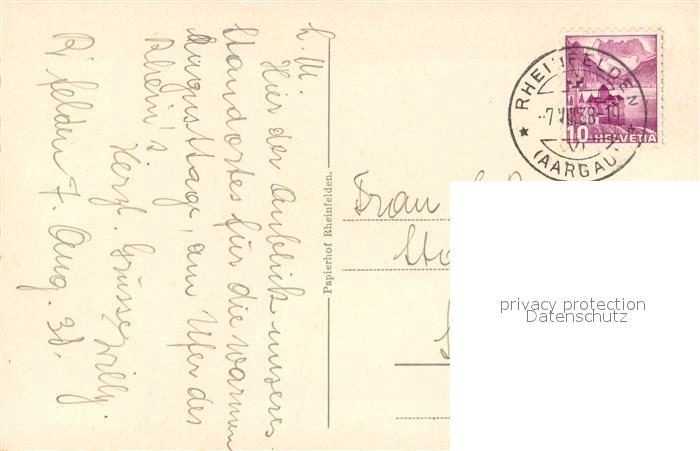 L. M.
Hier der Anblick unseres
Standortes für die warmen
Augusttage, am Ufer des
Rhein's.
Herzl. Grüsse, Willy.
R'felden 7. Aug. 38.
Papierhof Rheinfelden.
RHEINFELDEN
-7.VIII.38-10
(AARGAU)
10 HELVETIA
Frau
privacy protection
Datenschutz